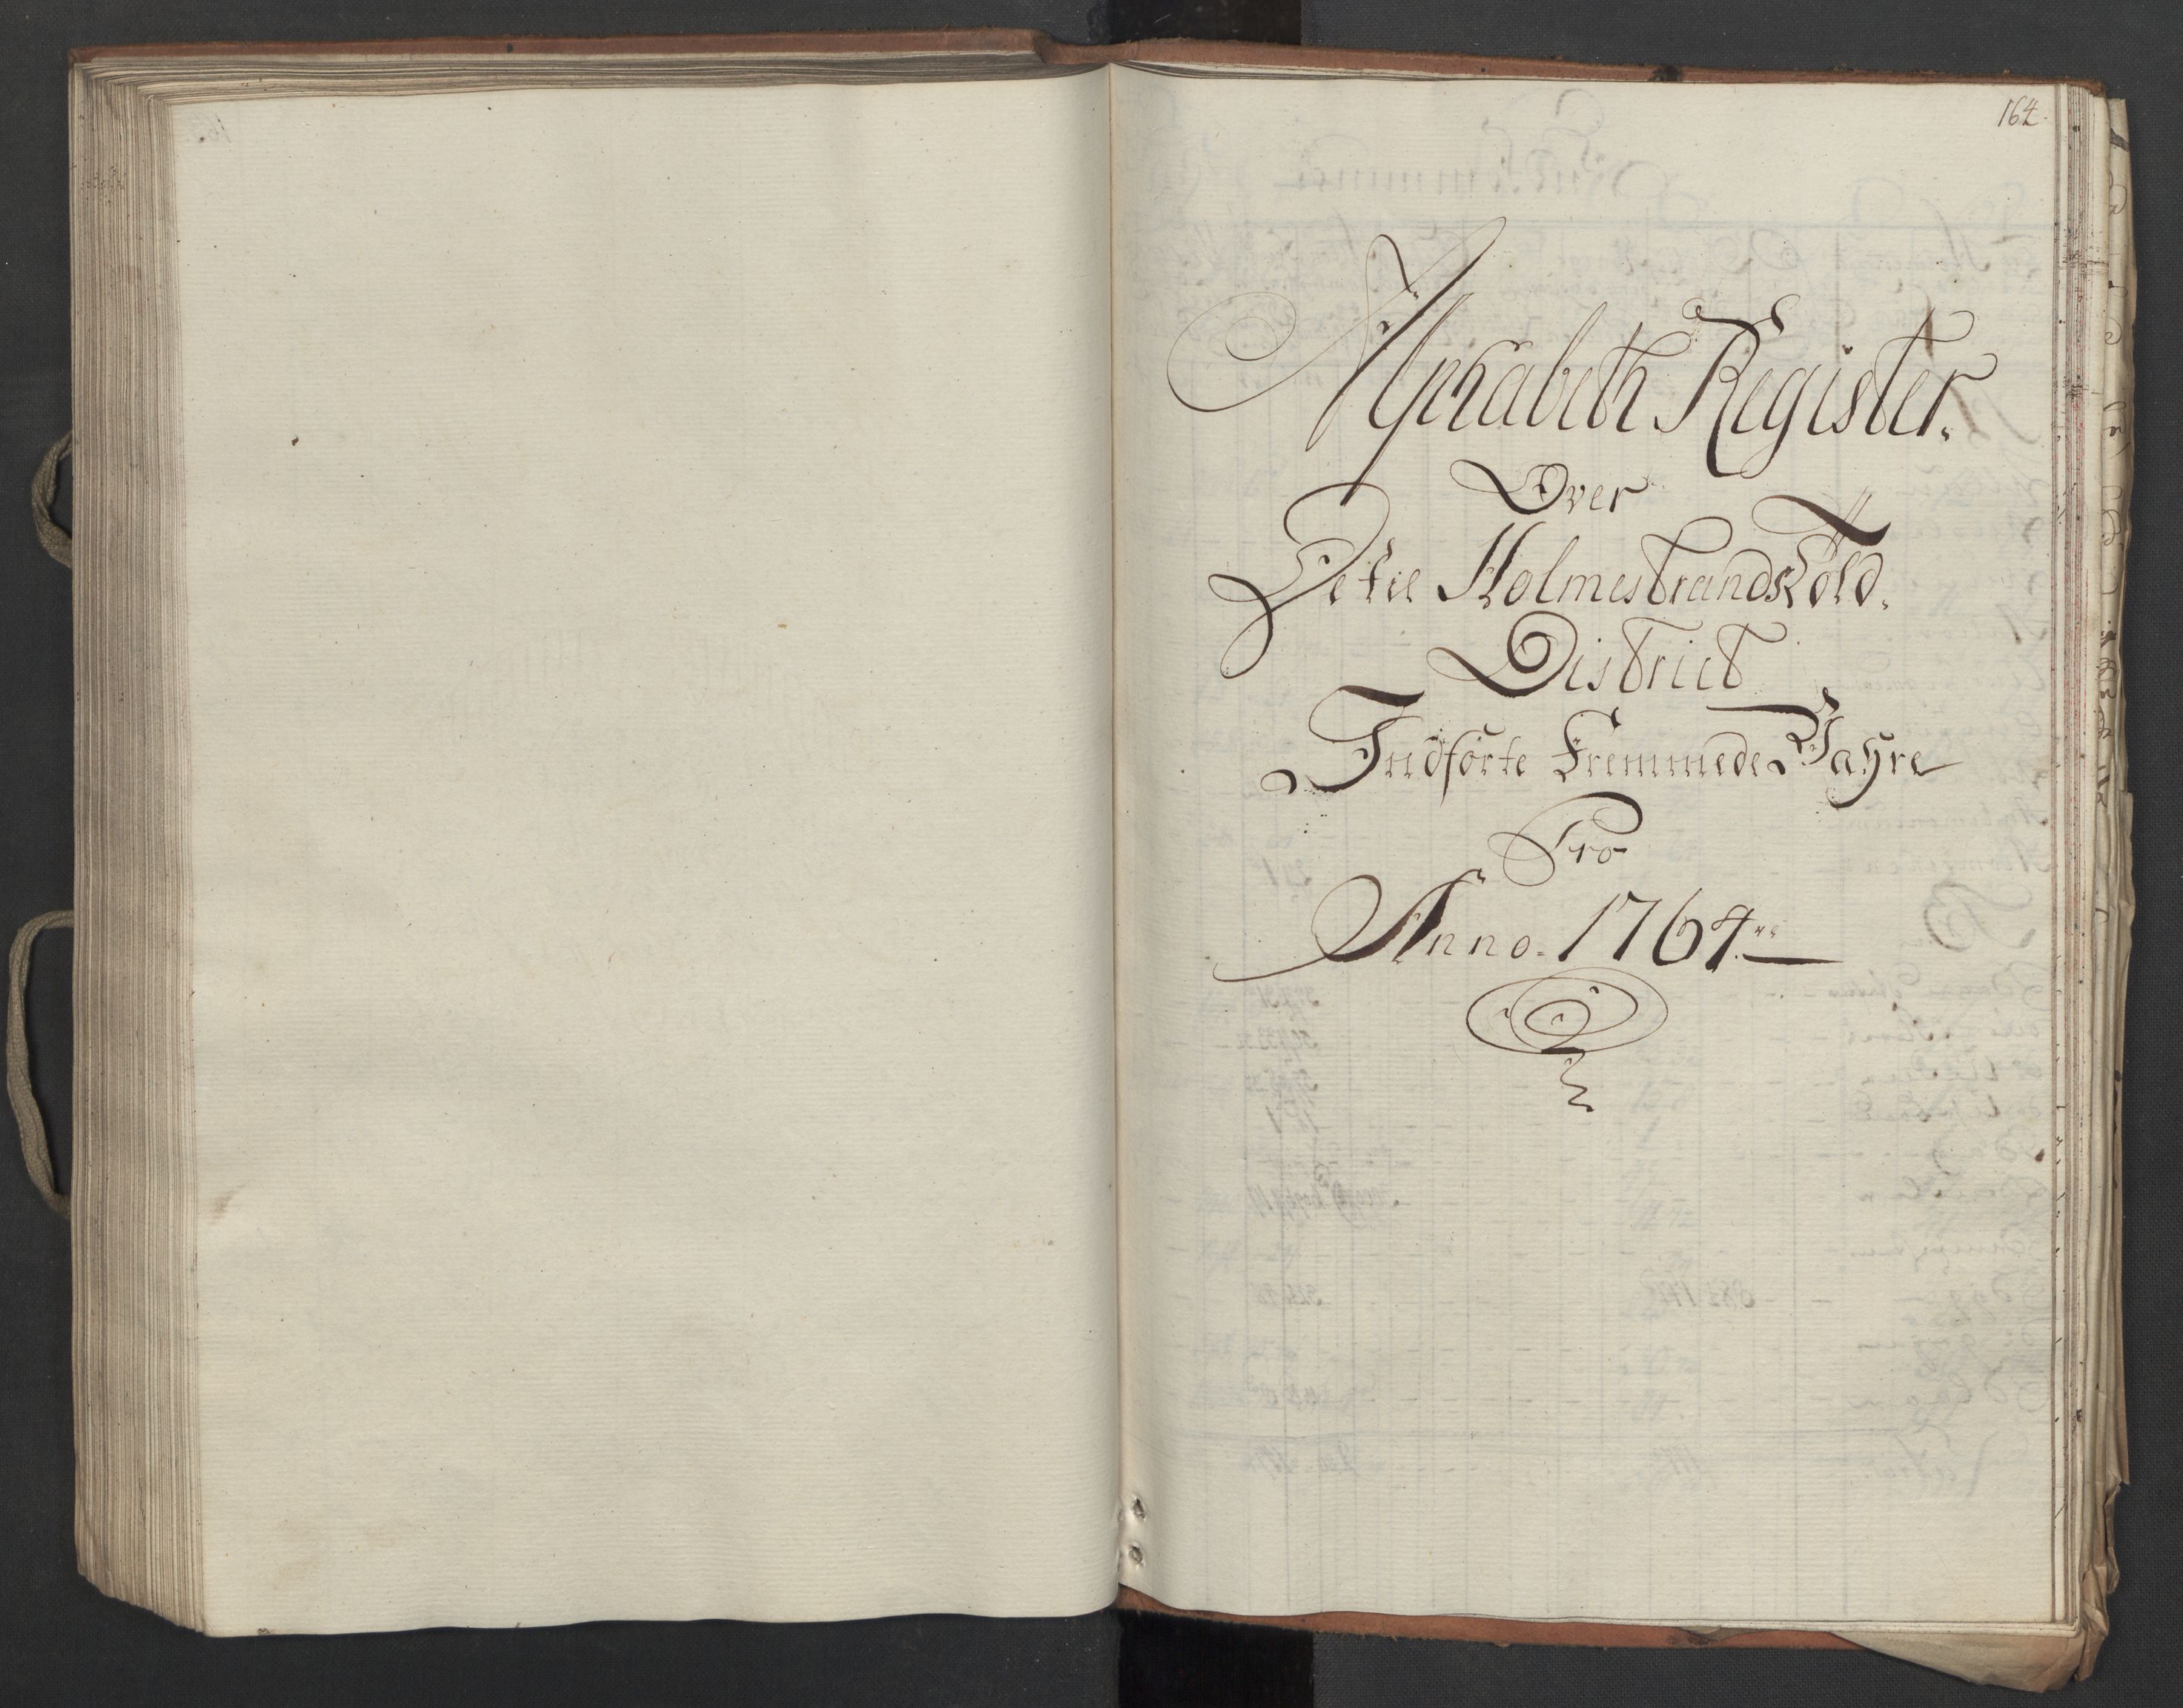 164.
Alphabeth Register.
Over
De til Holmestrands Told.
District
Indførte Fremmede Vahre
Pro
Anno. 1764.